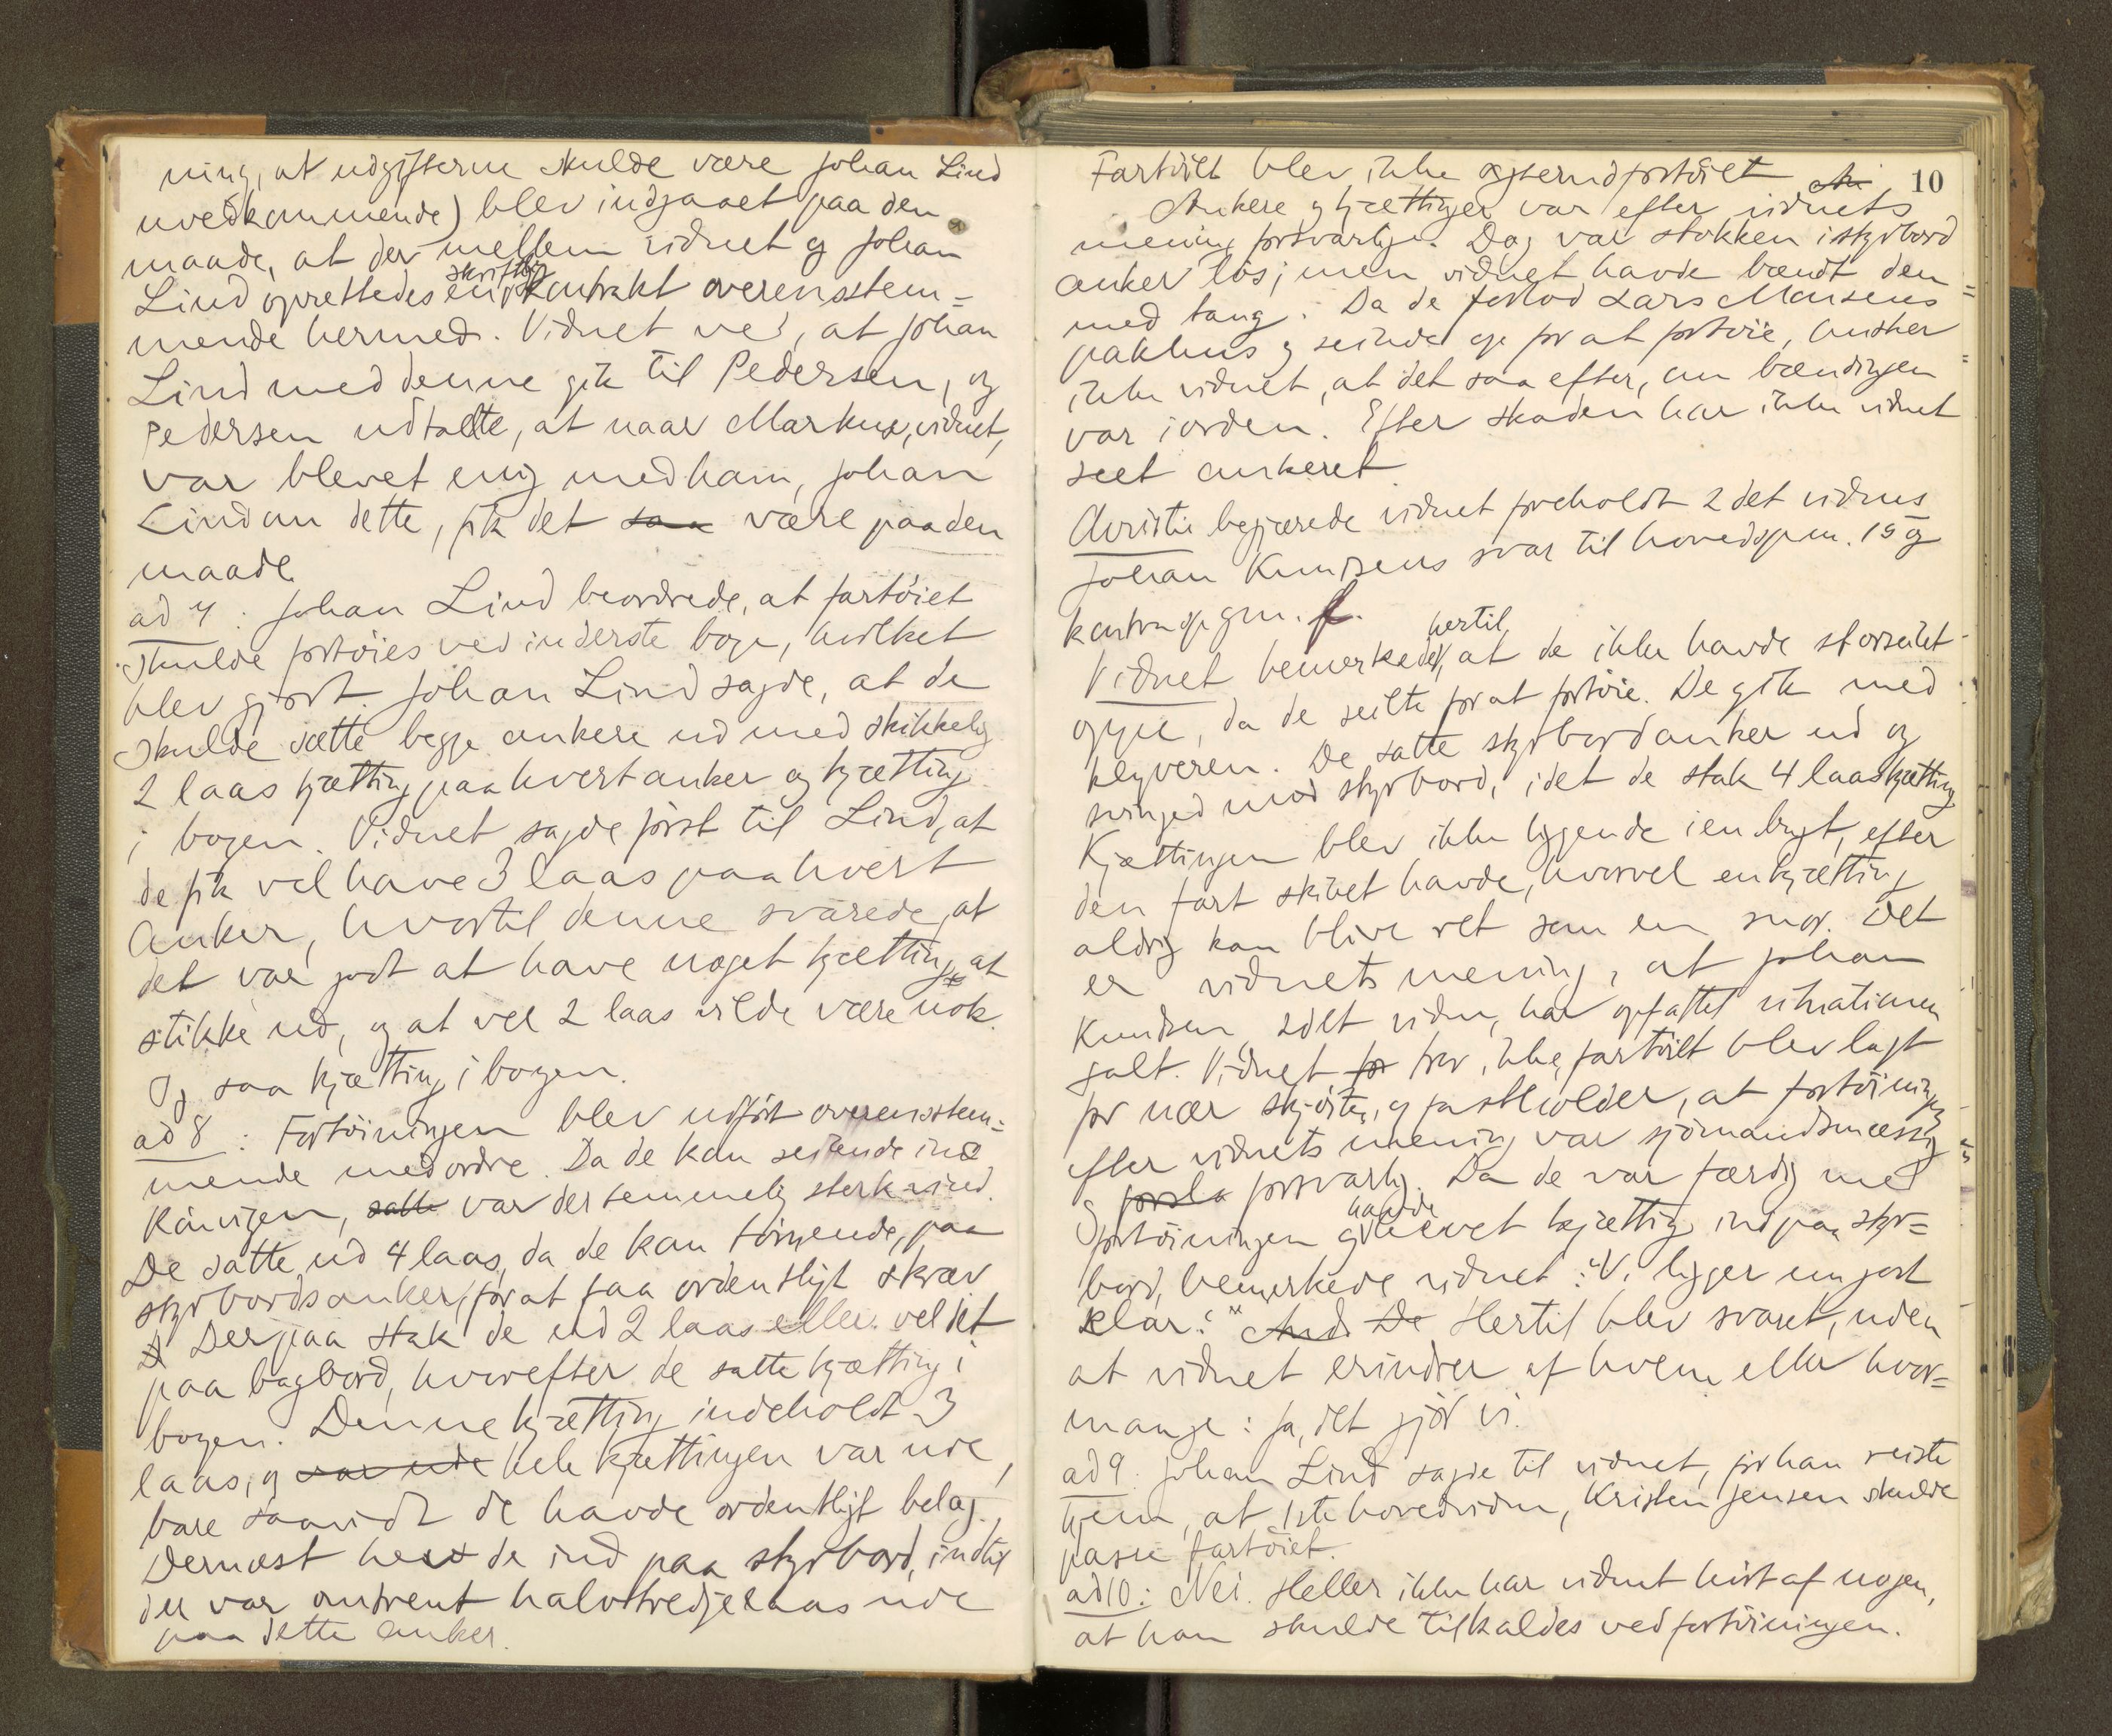 ning, at udgifterne skulde være Johan Lind
uvedkommende) blev indgaaet paa den
maade, at der mellem vidnet og Johan
Lind oprettedes en skriftlig kontrakt overensstem=
mende hermed. Vidnet ved, at Johan
Lind med denne gik til Pedersen, og
Pedersen udtalte, at naar Markus, vidnet,
var blevet enig med ham, Johan
Lind om dette, fik det saa være paa den
maade.
ad 7: Johan Lind beordrede, at fartöiet
skulde fortöies ved inderste boye, hvilket
blev gjort. Johan Lind sagde, at de
skulde sætte begge ankere ud med skikkelig
2 laas kjætting paa hvert anker og kjætting
i boyen. Vidnet sagde först til Lind, at
de fik vel have 3 laas paa hvert
anker, hvortil denne svarede, at
det var godt at have noget kjætting at
stikke ud, og at vel 2 laas vilde være nok.
Og saa kjætting i boyen.
ad 8: Fortöiningen blev udfört overensstem=
mende med ordre. Da de kom seilende ind
Kåvigen, satte var der temmelig sterk vind.
De satte ud 4 laas, da de kom törnende, paa
styrbords anker, for at faa ordentligt skrev
Derpaa stak de ud 2 laas eller vel det
paa bagbord, hvorefter de satte kjætting i
boyen. Denne kjætting indeholdt 3
laas, og var ude hele kjættingen var ude,
bare saavidt de havde ordentligt belag.
Dernæst hev de ind paa styrbord, indtil
der var omtrent halvtredje laas ude
paa dette anker.
10
Fartöiet blev ikke agterudfortöiet
Ankere og kjættinger var efter vidnets
mening forsvarlige. Dog var stokken i styrbord
anker lös; men vidnet havde bændt den
med taug. Da de forlod Lars Monsens
pakhus og seilede op for at fortöie, husker
ikke vidnet, at det saa efter, om bændingen
var i orden. Efter skaden har ikke vidnet
seet ankeret.
Christie begjærede vidnet foreholdt 2det vidnes
Johan Knudsens svar til hovedspm. 15 og
kontraspgm. f.
Vidnet bemerkede hertil, at de ikke havde storseilet
oppe, da de seilte for at fortöie. De gik med
klyveren. De satte styrbord anker ud og
svinged mod styrbord, idet de stak 4 laas kjætting
Kjættingen blev ikke liggende i en bugt, efter
den fart skibet havde, hvorvel en kjætting
aldrig kan blive ret som en snor. Det
er vidnets mening, at Johan
Knudsen, 2det vidne, har opfattet situationen
galt. Vidnet for tror ikke, fartöiet blev lagt
for nær skjöiten, og fastholder, at fortöiningen
efter vidnets mening var sjömandsmæssig
og forsla forsvarlig. Da de var færdig med
fortöiningen og havde hevet kjætting ind paa styr=
bord, bemerkede vidnet: "Vi ligger nu godt
klar." De Hertil blev svaret, uden
at vidnet erindrer af hvem eller hvor=
mange: Ja, det gjör vi.
ad 9. Johan Lind sagde til vidnet, för han reiste
hjem, at 1ste hovedvidne, Kristen Jensen skulde
passe fartöiet.
ad 10: Nei. Heller ikke har vidnet hört af nogen,
at han skulde tilkaldes ved fortöiningen.